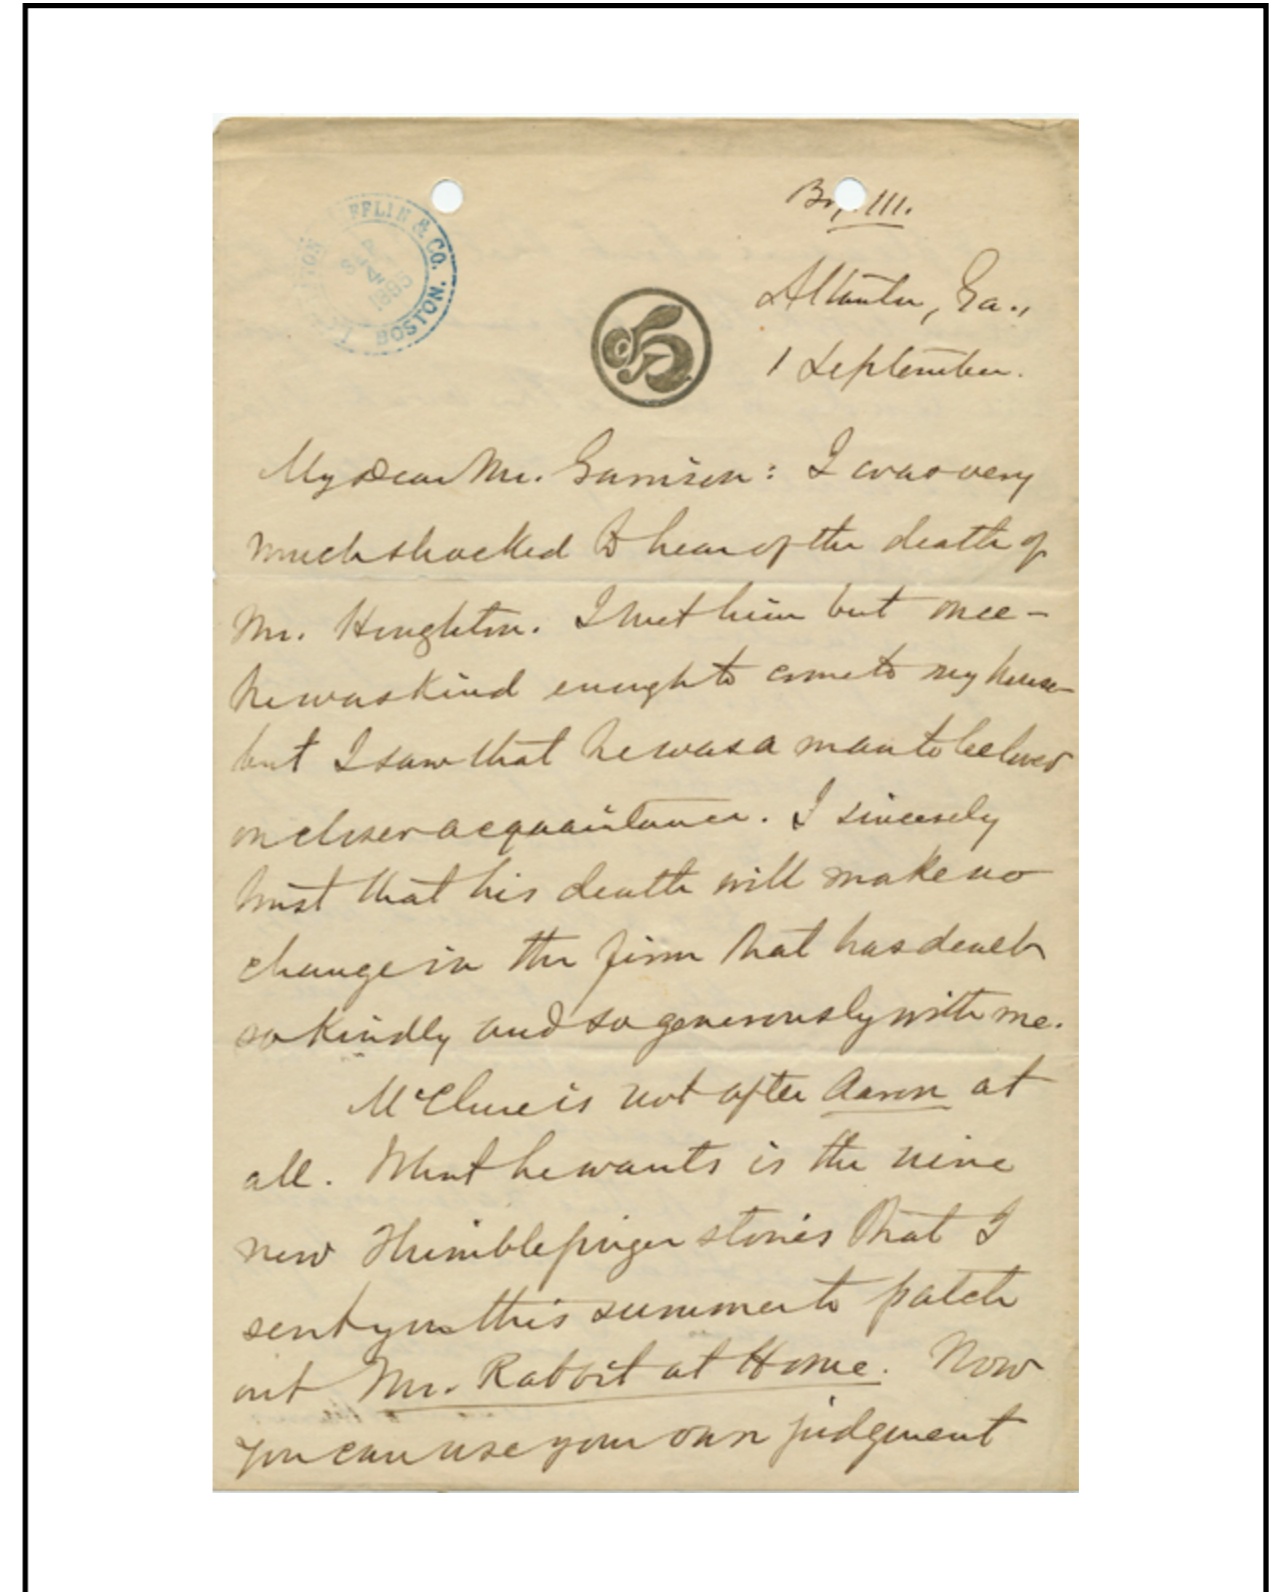 FFLIN & CO.
BOSTON.
1895
Box 111.
Atlanta, Ga.,
1 September.
My dear Mr. Garrison: I was very
much shocked to hear of the death of
Mr. Houghton. I met him but once —
he was kind enough to come to my house —
but I saw that he was a man to be loved
on closer acquaintance. I sincerely
trust that his death will make no
change in the firm that has dealt
so kindly and so generously with me.
McClure is not after Aaron at
all. What he wants is the nine
new Thimblefinger stories that I
sent you this summer to patch
out Mr. Rabbit at Home. Now
you can use your own judgment